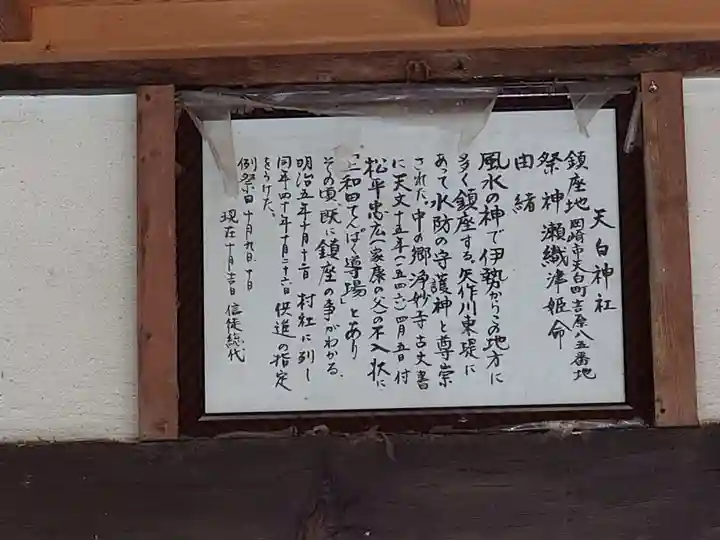 天白神社
鎮座地 岡崎市天白町吉原八五番地
祭神 瀬織津姫命
由緒
風水の神で伊勢からこの地方に
多く鎮座する。矢作川東堤に
あって水防の守護神と尊崇
された。中の郷浄妙寺古文書
に天文十五年(一五四六)四月五日付
松平忠広(家康の父)の不入状に
「上和田てんぱく導場」とあり
その頃、既に鎮座の事がわかる。
明治五年十月十二日 村社に列し
同年四十年十月二十六日 供進の指定
をうけた。
例祭日 十月九日、十日
現在 十月吉日 信徒総代